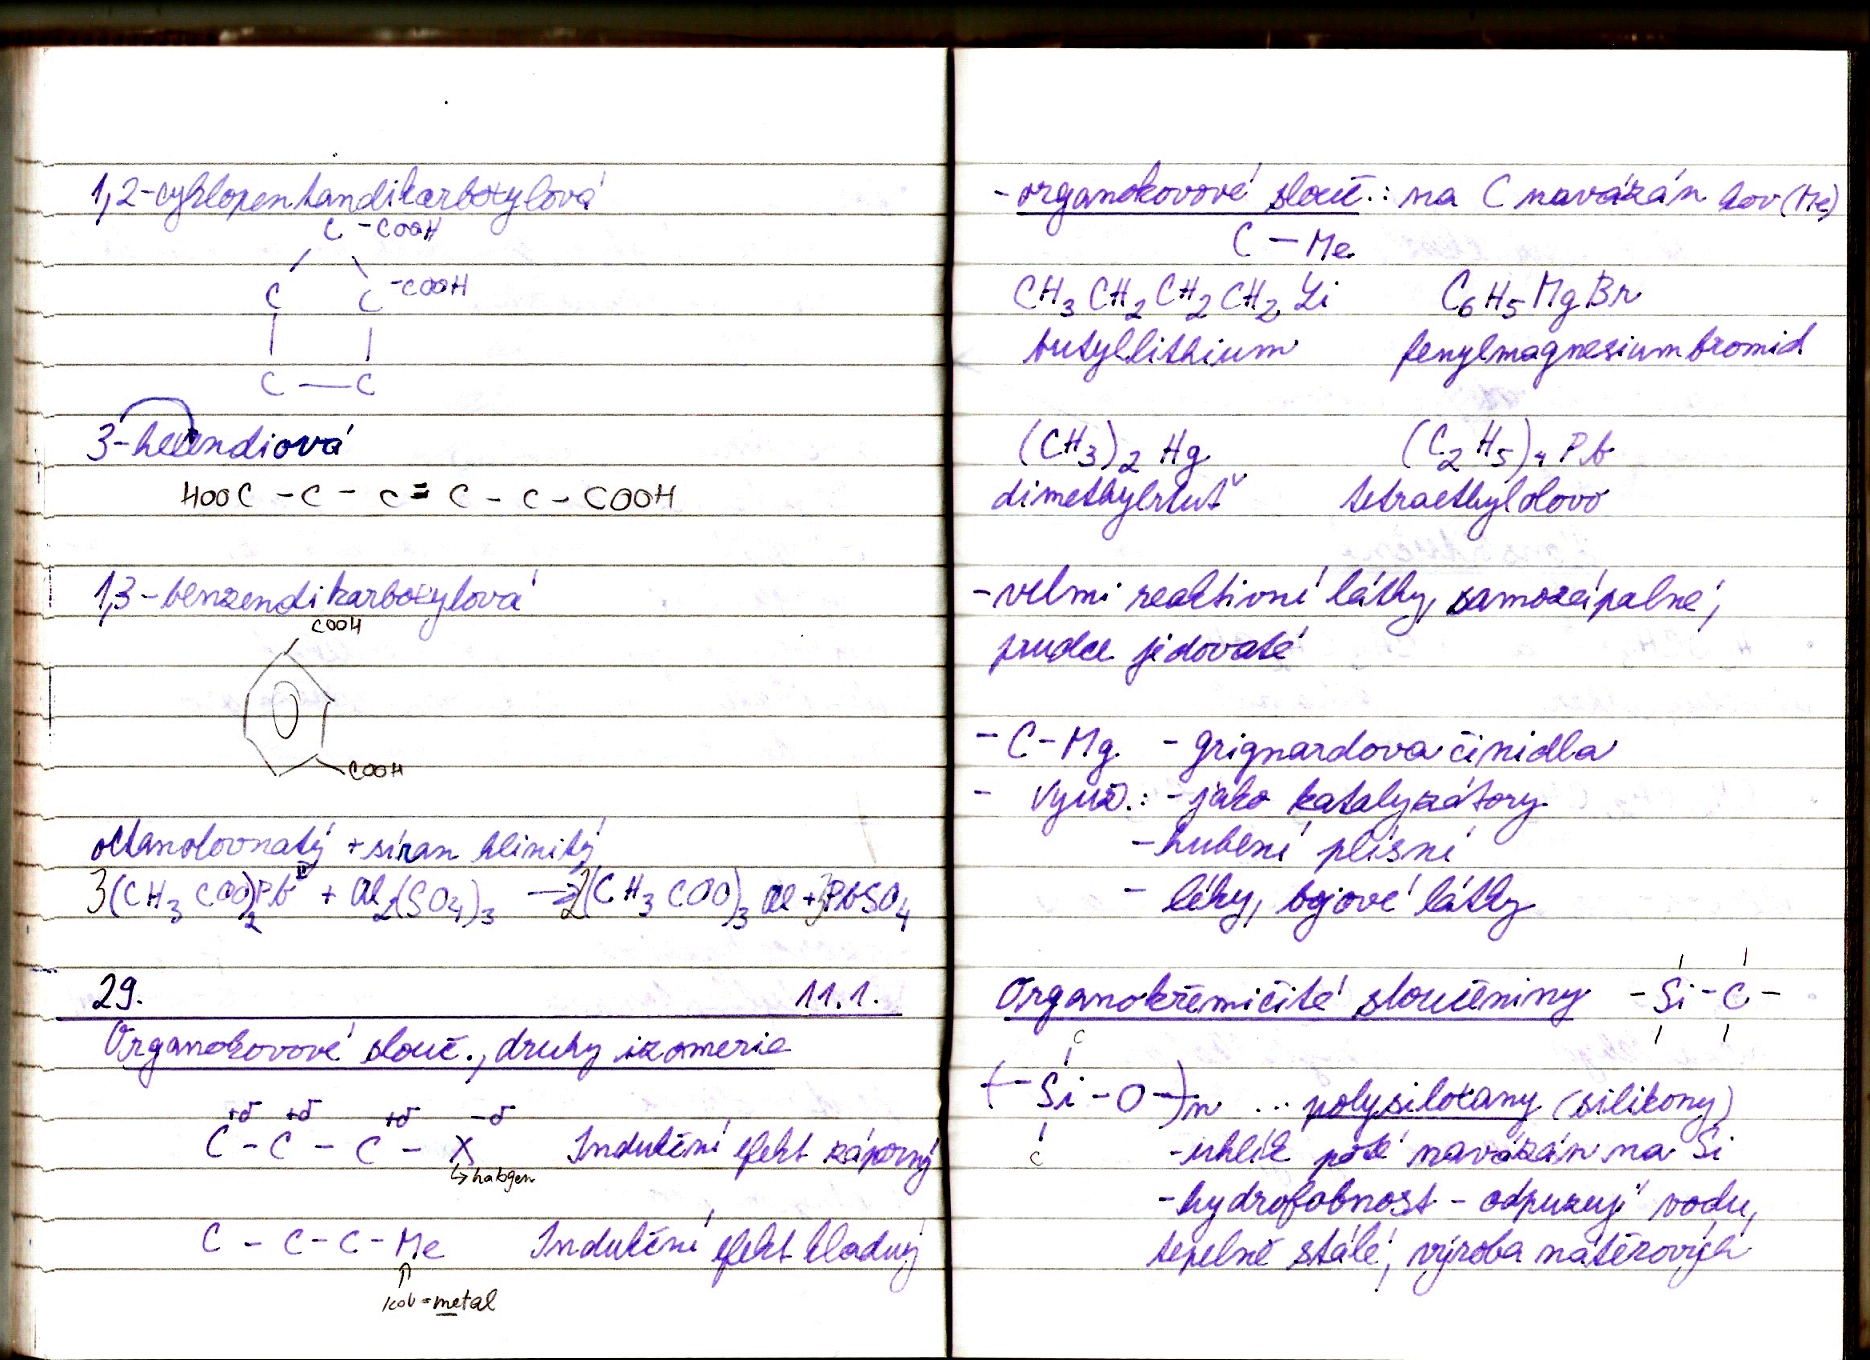 1,2-cyklopentandikarboxylová
C - COOH
C C -COOH
C — C
3-hexendiová
HOOC - C - C = C - C - COOH
1,3-benzendikarboxylová
COOH
COOH
octanolovnatý + síran hlinitý
3(CH3COO)2Pb^II + Al2(SO4)3 → 2(CH3COO)3Al + 3PbSO4
29. 11.1.
Organokovové slouč., druhy izomerie
+δ +δ +δ -δ
C - C - C - X Indukční efekt záporný
↳ halogen
C - C - C - Me Indukční efekt kladný
↑
kov = metal
- organokovové slouč.: na C navázán kov (Me)
C - Me
CH3CH2CH2CH2Li C6H5MgBr
butyllithium fenylmagnesiumbromid
(CH3)2Hg (C2H5)4Pb
dimethylrtuť tetraethylolovo
- velmi reaktivní látky, samozápalné,
prudce jedovaté
- C-Mg - grignardova činidla
- využ.: - jako katalyzátory
- hubení plísní
- léky, bojové látky
Organokřemičité sloučeniny -Si-C-
C
(-Si-O-)n ... polysiloxany (silikony)
C - uhlík poté navázán na Si
- hydrofobnost - odpuzují vodu,
tepelně stálé, výroba nátěrových